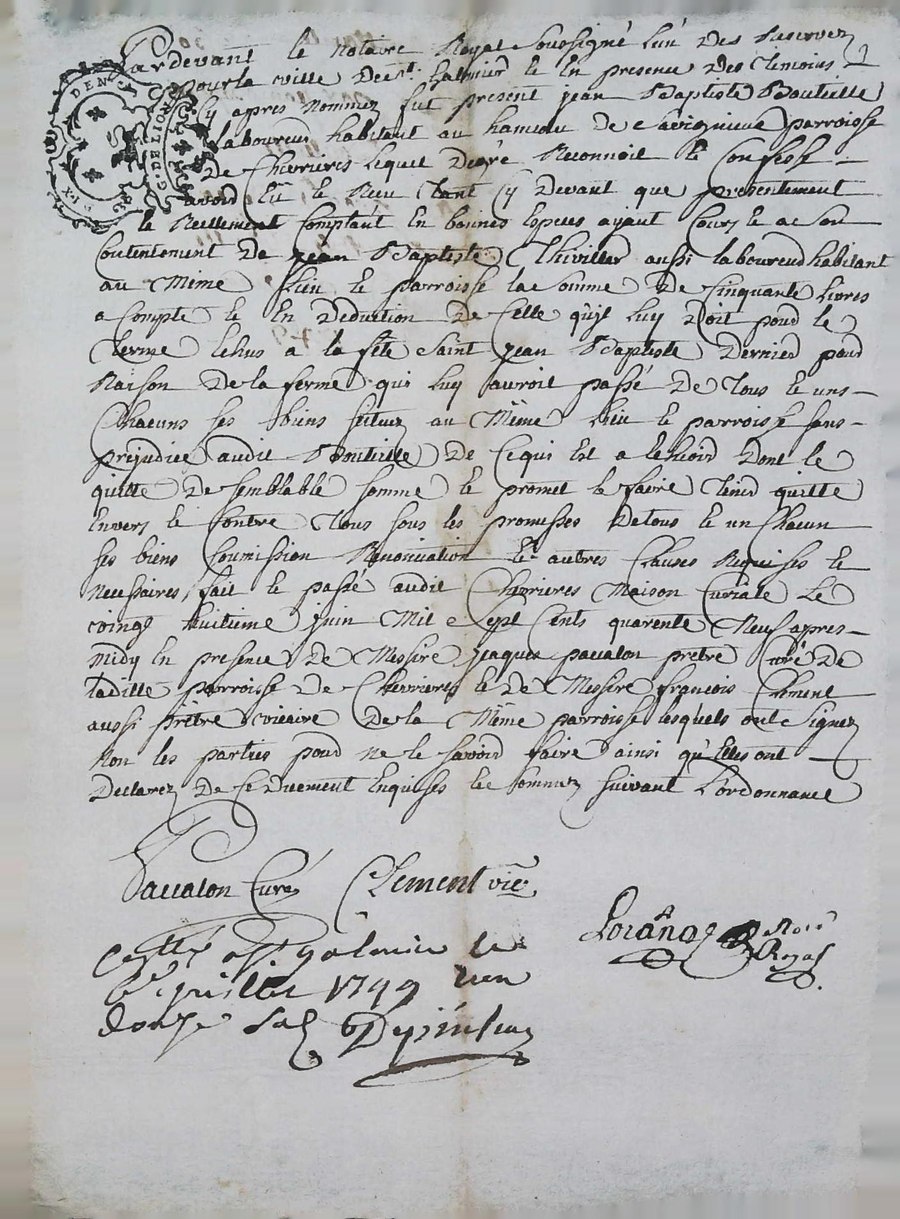 Pardevant le Notaire Royal Soussigné l'un des Reservez
pour la ville de St. Galmier et en presence des temoins
cy apres nommez fut present jean Baptiste Bouteille
laboureur habitant au hameau de parroisse
de Chevrieres lequel de gré Reconnoit et Confesse
avoir eü et Reçu tant cy devant que presentement
et Reellement Comptant en bonnes especes ayant Cours et a son
Contentement de jean Baptiste Thivillier aussi laboureur habitant
au Même Lieu et parroisse la somme de Cinquante livres
a Compte et en deduction de Celle qu'il luy doit pour le
therme echus a la fête saint jean Baptiste dernier pour
Raison de la ferme qui luy auroit passé de tous et uns
Chacuns ses biens scituez au Même Lieu et parroisse sans
prejudice audit Bouteille de Ce qui est a echoir dont le
quitte de semblable somme et promet le faire tenir quitte
envers et Contre tous sous les promesses de tous et un Chacun
ses biens soumission Renonciation et autres Clauses Requises et
necessaires, fait et passé audit Chevrieres Maison Curiale Le
vingt huitieme juin Mil Sept Cents quarente Neuf apres
midy en presence de Messire jacques pavalon prêtre Curé de
laditte parroisse de Chevrieres et de Messire françois Clement
aussi prêtre vicaire de la Même parroisse lesquels ont signez
non les parties pour ne le savoir faire ainsi qu'elles ont
declarez de ce duement enquises et sommez suivant l'ordonnance
Pavalon Curé Clement vic.
Notr.
Royal
Con.llé a St. galmier le
juillet 1749 Reçu
douze sols